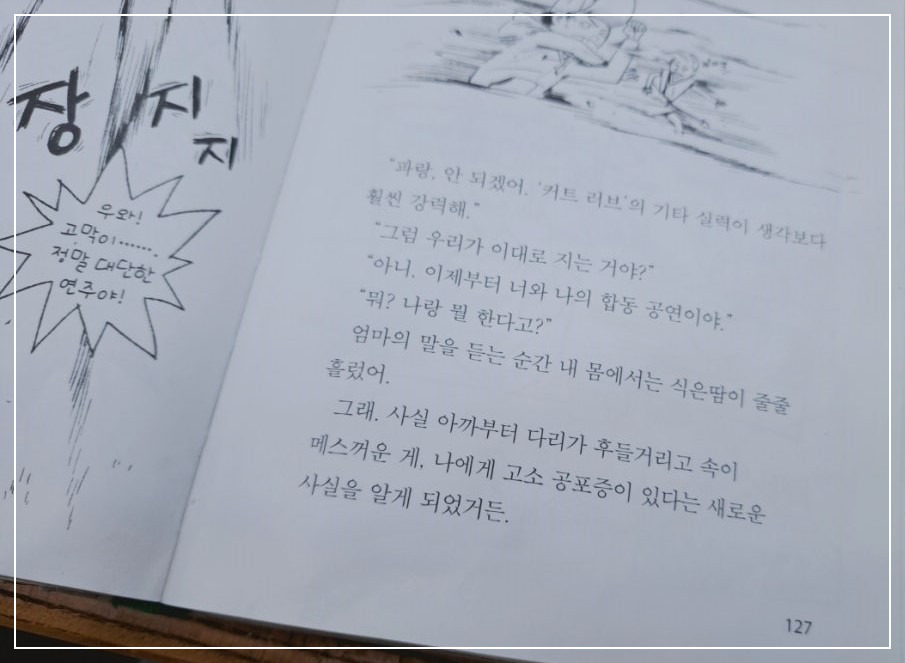 장
지
지
우와!
고막이……
정말 대단한
연주야!
“파랑, 안 되겠어. ‘커트 러브’의 기타 실력이 생각보다
훨씬 강력해.”
“그럼 우리가 이대로 지는 거야?”
“아니. 이제부터 너와 나의 합동 공연이야.”
“뭐? 나랑 뭘 한다고?”
엄마의 말을 듣는 순간 내 몸에서는 식은땀이 줄줄
흘렀어.
그래. 사실 아까부터 다리가 후들거리고 속이
메스꺼운 게, 나에게 고소 공포증이 있다는 새로운
사실을 알게 되었거든.
127